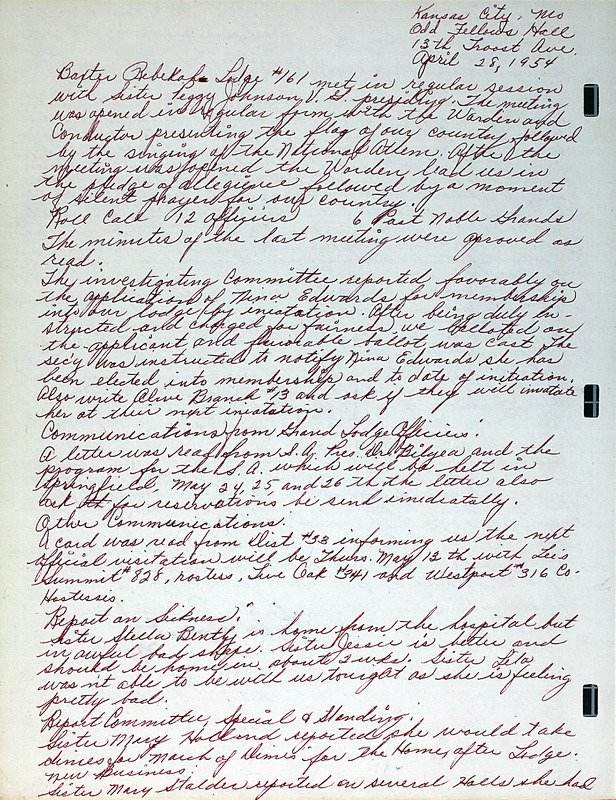 Kansas City, Mo
Odd Fellows Hall
13th Troost Ave.
April 28, 1954
Baxter Rebekah Lodge #161 met in regular session
with Sister Peggy Johnson N. G. presiding. The meeting
was opened in regular form with the Warden and
Conductor presenting the flag of our country followed
by the singing of the National Athem. After the
meeting was opened the Warden lead us in
the pledge of allegience followed by a moment
of silent prayer for our country.
Roll Call 12 officers 6 Past Noble Grands
The minutes of the last meeting were aproved as
read.
The investigating Committee reported favorably on
the application of Nina Edwards for membership
into our lodge by iniatation. After being duly in-
structed and charged for fairness, we balloted on
the applicant and favorable ballot was cast. The
secy was instructed to notify Nina Edwards she has
been elected into membership and to date of initiation.
Also write Olive Branch #13 and ask if they will iniatate
her at their next iniatation.
Communications from Grand Lodge Officers.
A letter was read from S. A. Pres. and the
program for the S. A. which will be helt in
Springfield, May 24, 25, and 26 th the letter also
ask for reservations be send imediatally.
Other Communications.
A card was read from Dist #33 informing us the next
official visitation will be Thurs. May 13 th with Lee's
Summit #828, hostess, Live Oak #341 and Westport #316 Co-
Hostesses.
Report on Sickness.
Sister Stella Bently is home from the hospital but
in awful bad shape. Sister Jessie is better and
should be home in about 2 wks. Sister Lela
was n't able to be with us tonight as she is feeling
pretty bad.
Report Committee, Special & Standing.
Sister Mary Holland reported she would take
dimes for March of Dimes for the Home, after Lodge.
New Business.
Sister Mary Stalder reported on several Halls she had